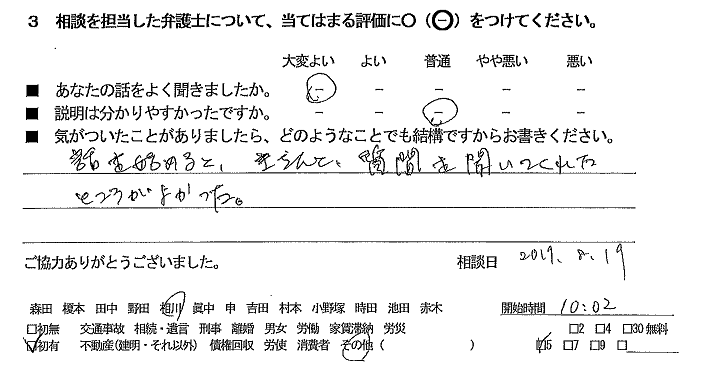 3 相談を担当した弁護士について、当てはまる評価に○(㊀)をつけてください。
大変よい よい 普通 やや悪い 悪い
■ あなたの話をよく聞きましたか。 － － － － －
■ 説明は分かりやすかったですか。 － － － － －
■ 気がついたことがありましたら、どのようなことでも結構ですからお書きください。
話を始めると、 質問を聞いてくれた
ところがよかった。
ご協力ありがとうございました。 相談日 2019. 8. 19
森田 榎本 田中 野田 相川 眞中 申 吉田 村本 小野塚 時田 池田 赤木 開始時間 10:02
□初無 交通事故 相続・遺言 刑事 離婚 男女 労働 家賃滞納 労災 □2 □4 □30無料
□初有 不動産(建明・それ以外) 債権回収 労使 消費者 その他( ) □5 □7 □9 □